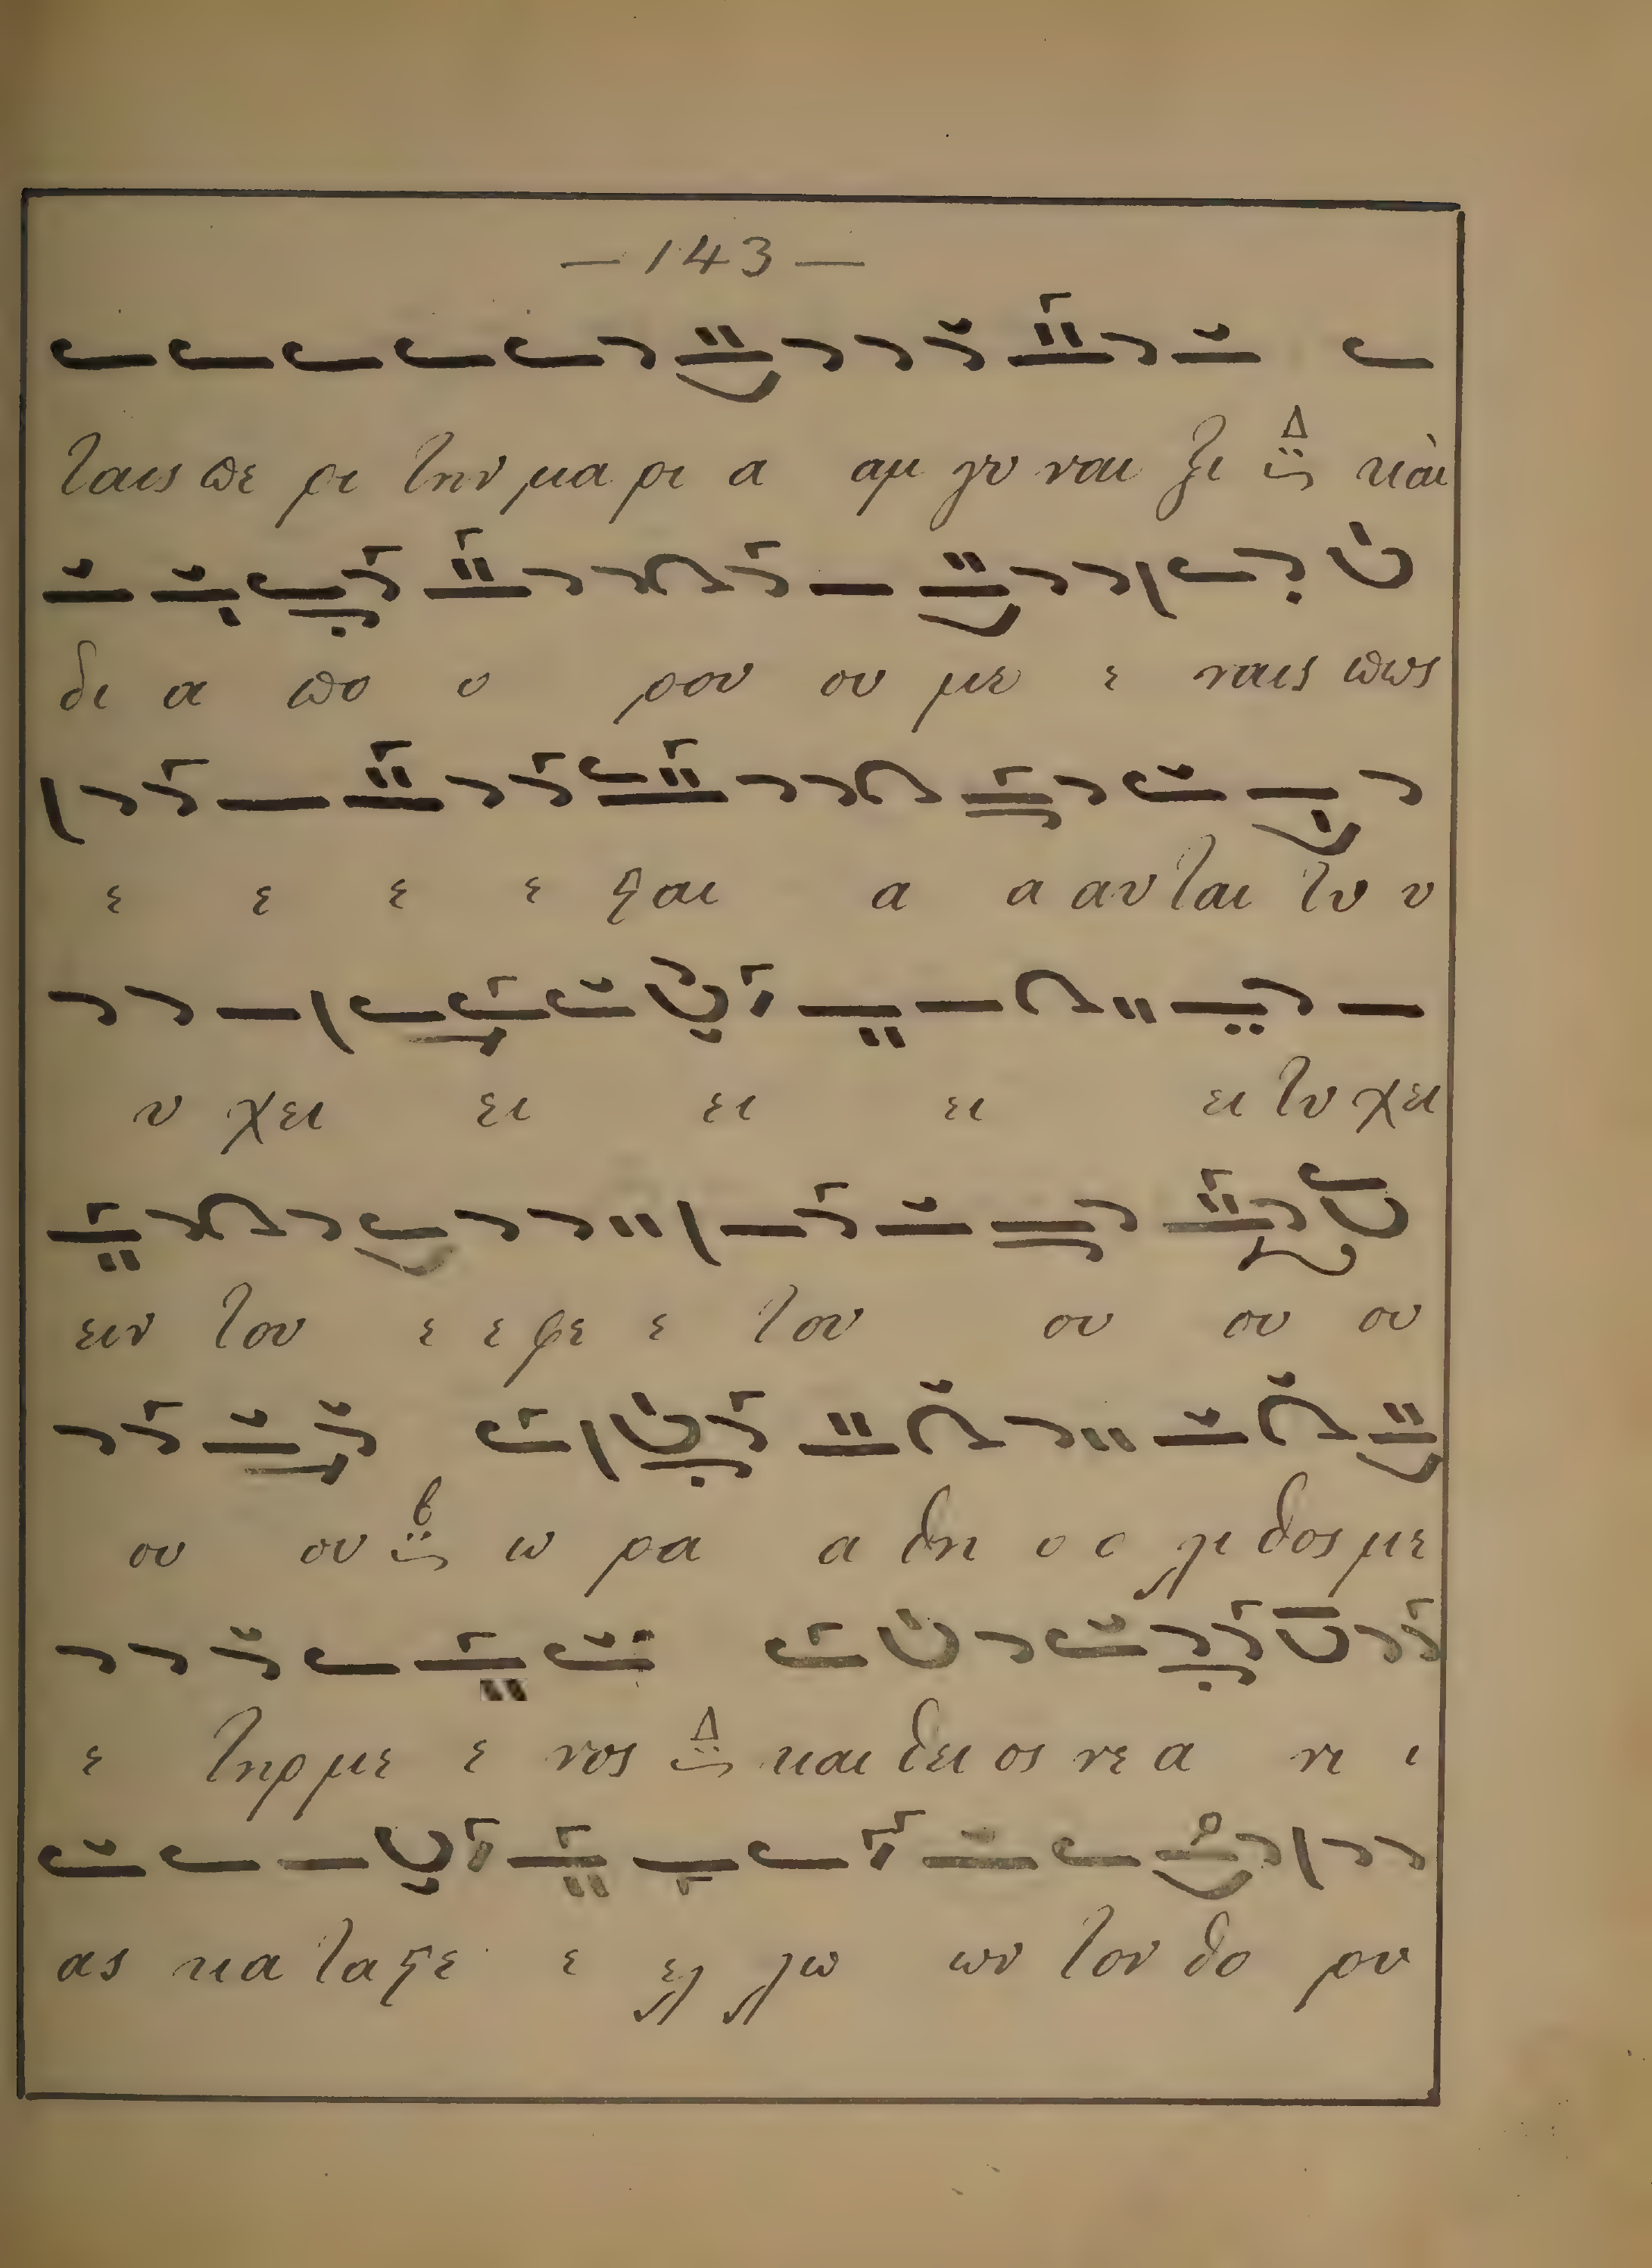 — 143 —
ταις πε ρι την μα ρι α αμ γυ ναι ξι Δ και
δι α πο ο ρου ου με ε ναις πως
ε ε ε ε σται α α αν ται τυ υ
υ χει ει ει ει ει τυ χει
ειν του ε ε φε ε του ου ου ου
ου ου β ω ρα α θη ο ο λι θος με
ε τηρ με ε νος Δ και θει ος νε α νι ι
ας κα τα στε ε ελ λω ων τον θο ρυ